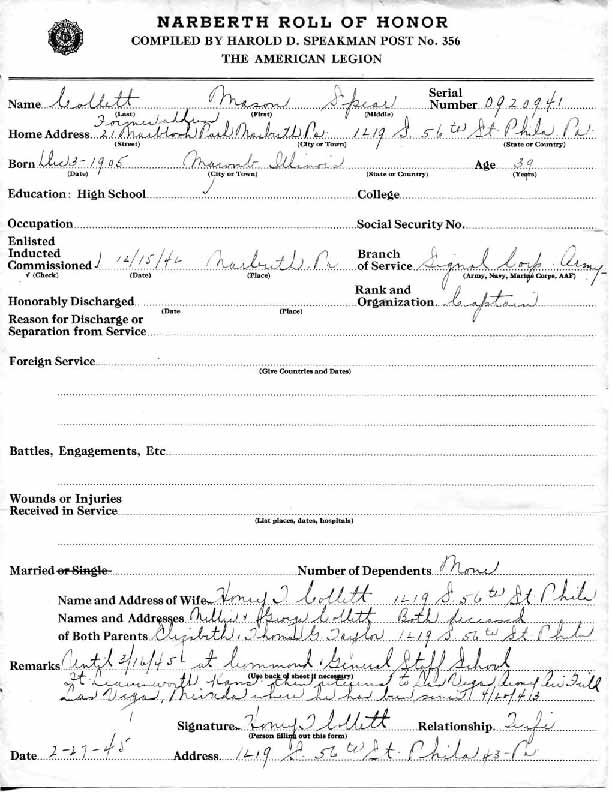 NARBERTH ROLL OF HONOR
COMPILED BY HAROLD D. SPEAKMAN POST No. 356
THE AMERICAN LEGION
Name Collett Mason Spear Serial Number 0920941
(Last) (First) (Middle)
Home Address 21 Park Narberth Pa 1219 S. 56th St Phila Pa
(Street) (City or Town) (State or Country)
Born 1905 Macomb Illinois Age 39
(Date) (City or Town) (State or Country) (Years)
Education: High School ✓ College
Occupation Social Security No.
Enlisted
Inducted
Commissioned ✓ 12/15/42 Narberth, Pa Branch of Service Signal Corp Army
√ (Check) (Date) (Place) (Army, Navy, Marine Corps, AAF)
Honorably Discharged Rank and Organization Captain
(Date (Place)
Reason for Discharge or
Separation from Service
Foreign Service
(Give Countries and Dates)
Battles, Engagements, Etc
Wounds or Injuries
Received in Service
(List places, dates, hospitals)
Married or Single Number of Dependents None
Name and Address of Wife Collett 1219 S 56th St Phila
Names and Addresses George Collett Both deceased
of Both Parents Elizabeth, Thomas Taylor 1219 S 56th St Phila
Remarks Until 2/16/45 at Command & General Staff School
(Use back of sheet if necessary)
Ft Leavenworth Kans. then returned to Las Vegas Army Air Field
Las Vegas, Nevada where he has been since
Signature Collett Relationship Wife
(Person filling out this form)
Date 2-27-45 Address 1219 S 56th St. Phila 43-Pa